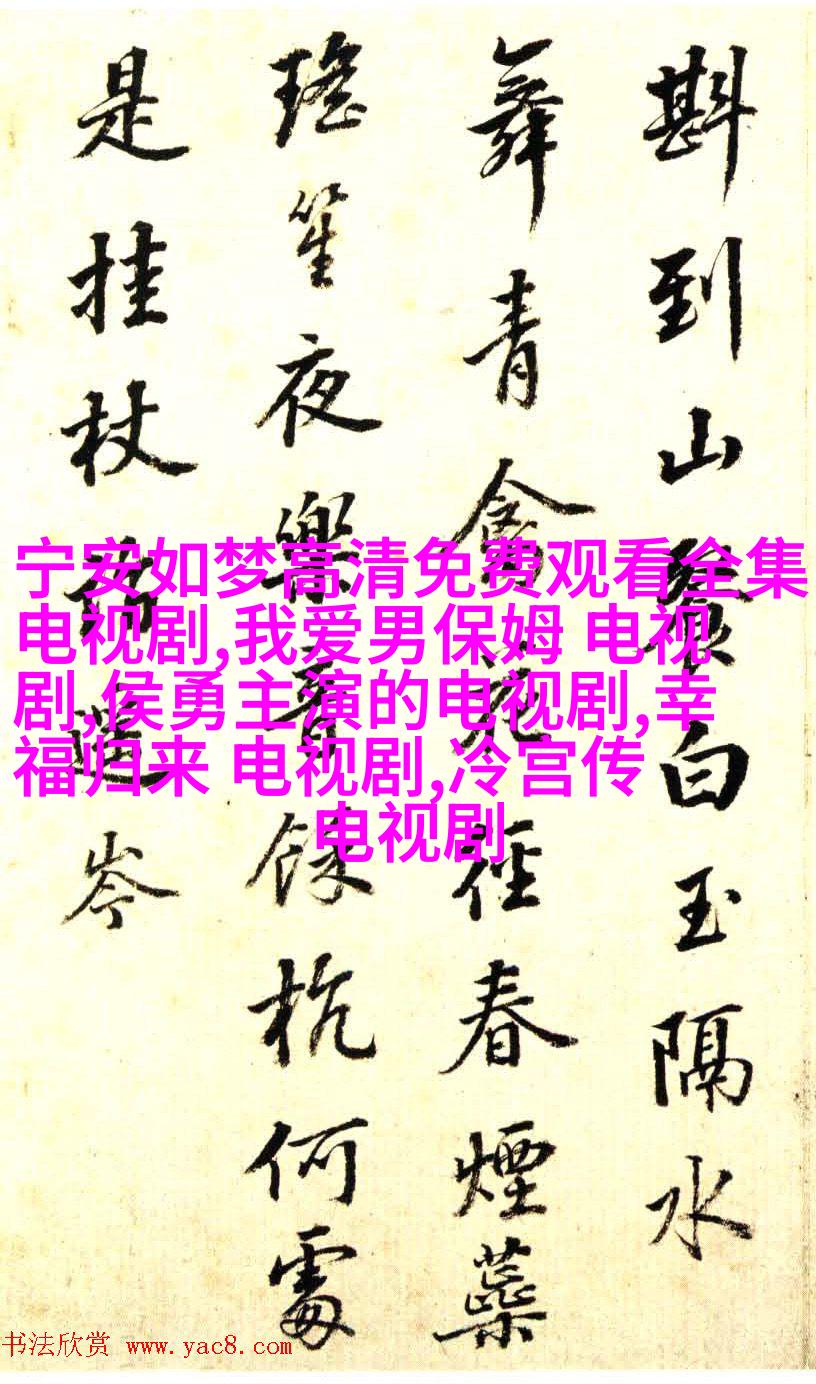 斟到山白玉隔水
舞青禽花徑春煙蘂
瑤笙夜樂音餘杭何處
是挂杖岑
宁安如梦高清免费观看全集
电视剧,我爱男保姆 电视
剧,侯勇主演的电视剧,幸
福归来 电视剧,冷宫传
电视剧
书法欣赏 www.yac8.com